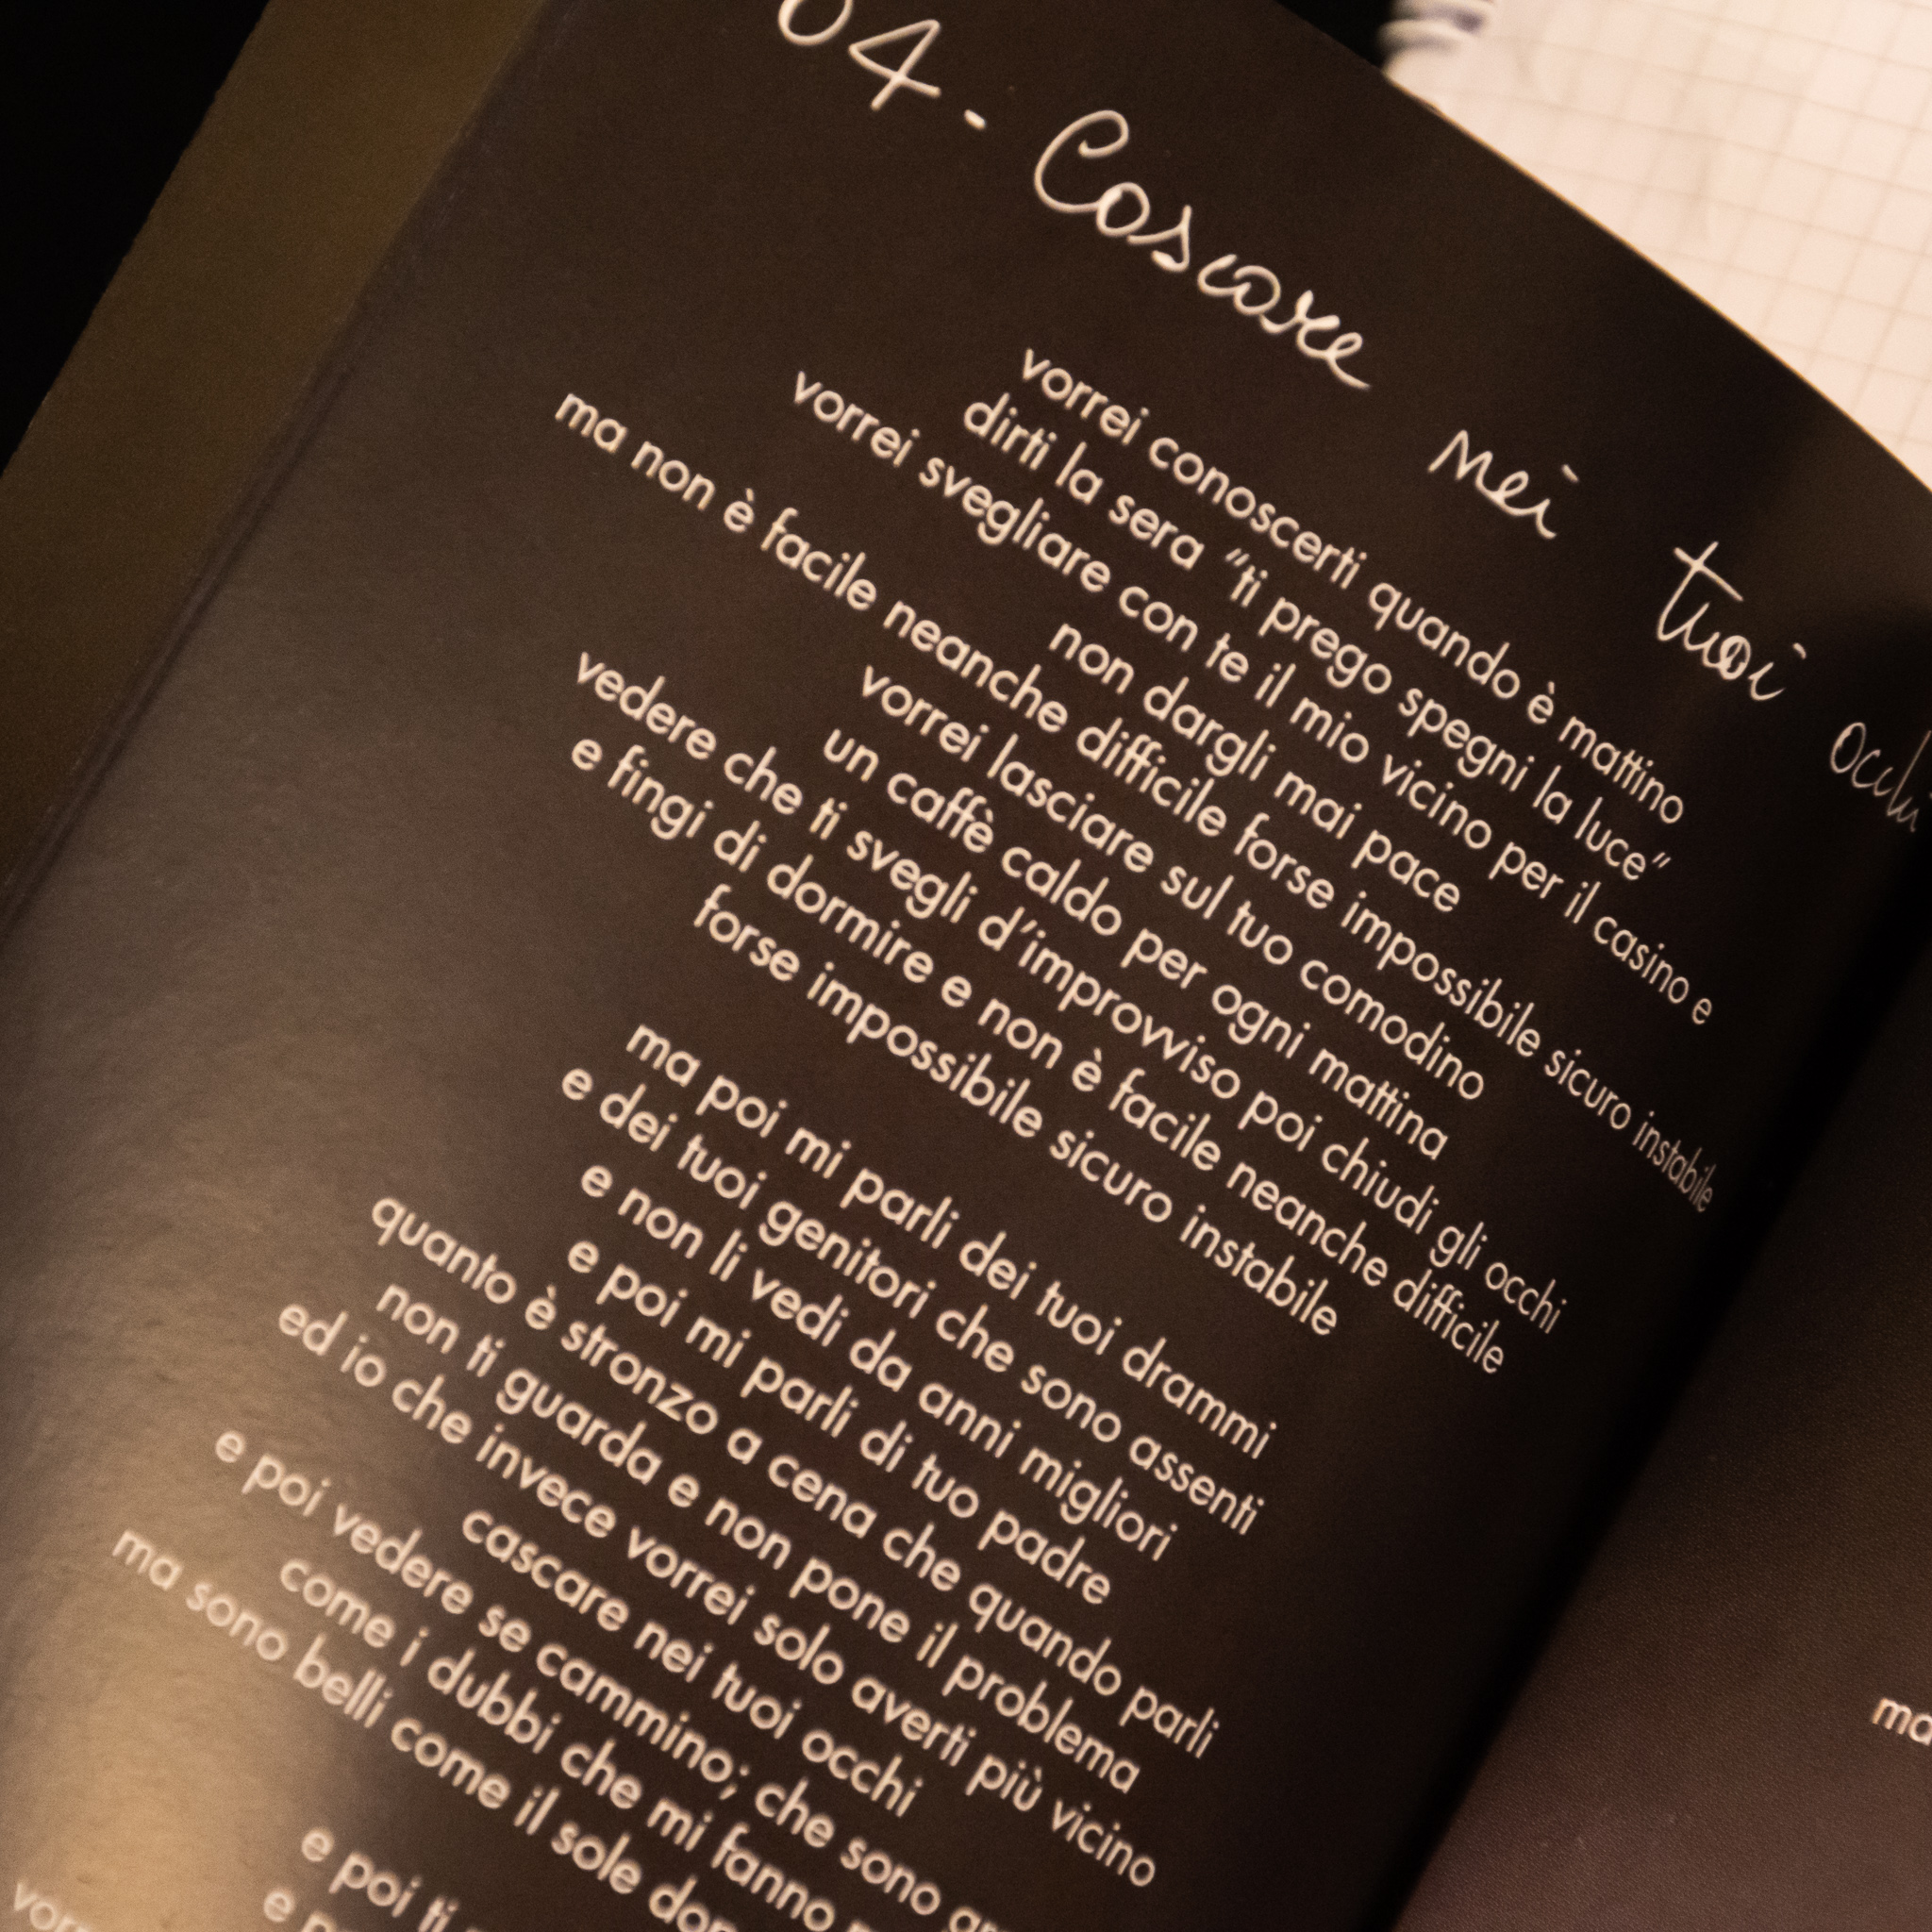 04 - Cascare nei tuoi occhi
vorrei conoscerti quando è mattino
dirti la sera “ti prego spegni la luce”
vorrei svegliare con te il mio vicino per il casino e
non dargli mai pace
ma non è facile neanche difficile forse impossibile sicuro instabile
vorrei lasciare sul tuo comodino
un caffè caldo per ogni mattina
vedere che ti svegli d’improvviso poi chiudi gli occhi
e fingi di dormire e non è facile neanche difficile
forse impossibile sicuro instabile
ma poi mi parli dei tuoi drammi
e dei tuoi genitori che sono assenti
e non li vedi da anni migliori
e poi mi parli di tuo padre
quanto è stronzo a cena che quando parli
non ti guarda e non pone il problema
ed io che invece vorrei solo averti più vicino
cascare nei tuoi occhi
e poi vedere se cammino; che sono
come i dubbi che mi fanno
ma sono belli come il sole
e poi ti
e